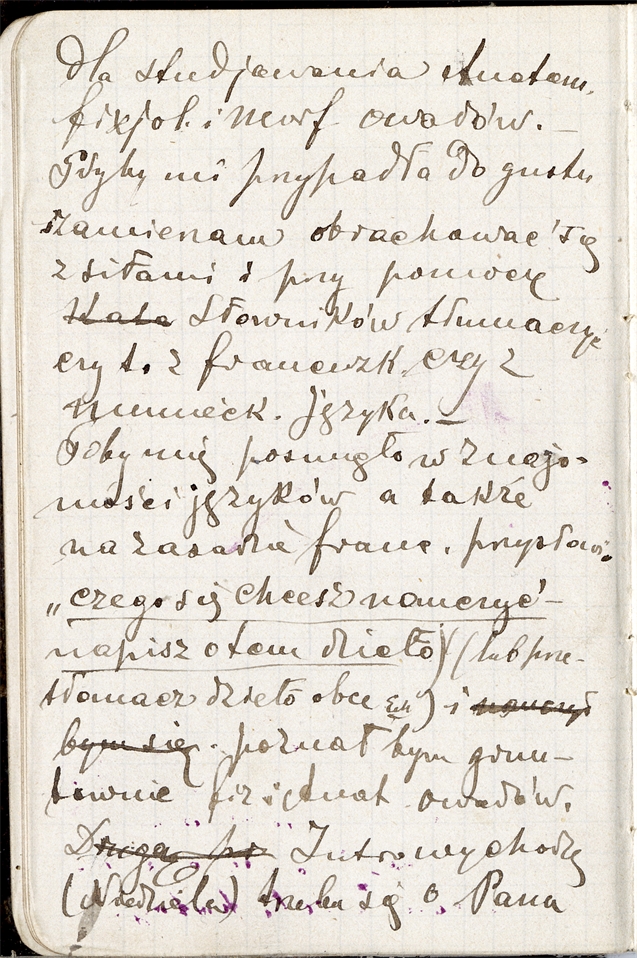 dla studjowania Anatom.
fizjol. i Morf owadów. —
Gdyby mi przypadła do gustu
zamierzam obrachować się
z siłami i przy pomocy
Słowników tłumaczyć
czy t. z francuzk. czy z
niemieck. języka. —
To by mię posunęło w znajo-
mości języków a także
na zasadzie franc. przysłowi
„czego się chcesz nauczyć —
napisz o tem dzieło) (lub prze-
tłomacz dzieło obce) i
bym się. poznał bym grun-
townie fiz i Anat owadów.
Druga Jutro wychodzę
(Niedziela) trzeba się o Pana